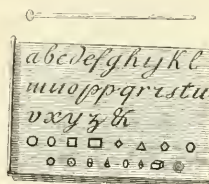 abcdefghijkl
mnoppqrzstu
vxyz &